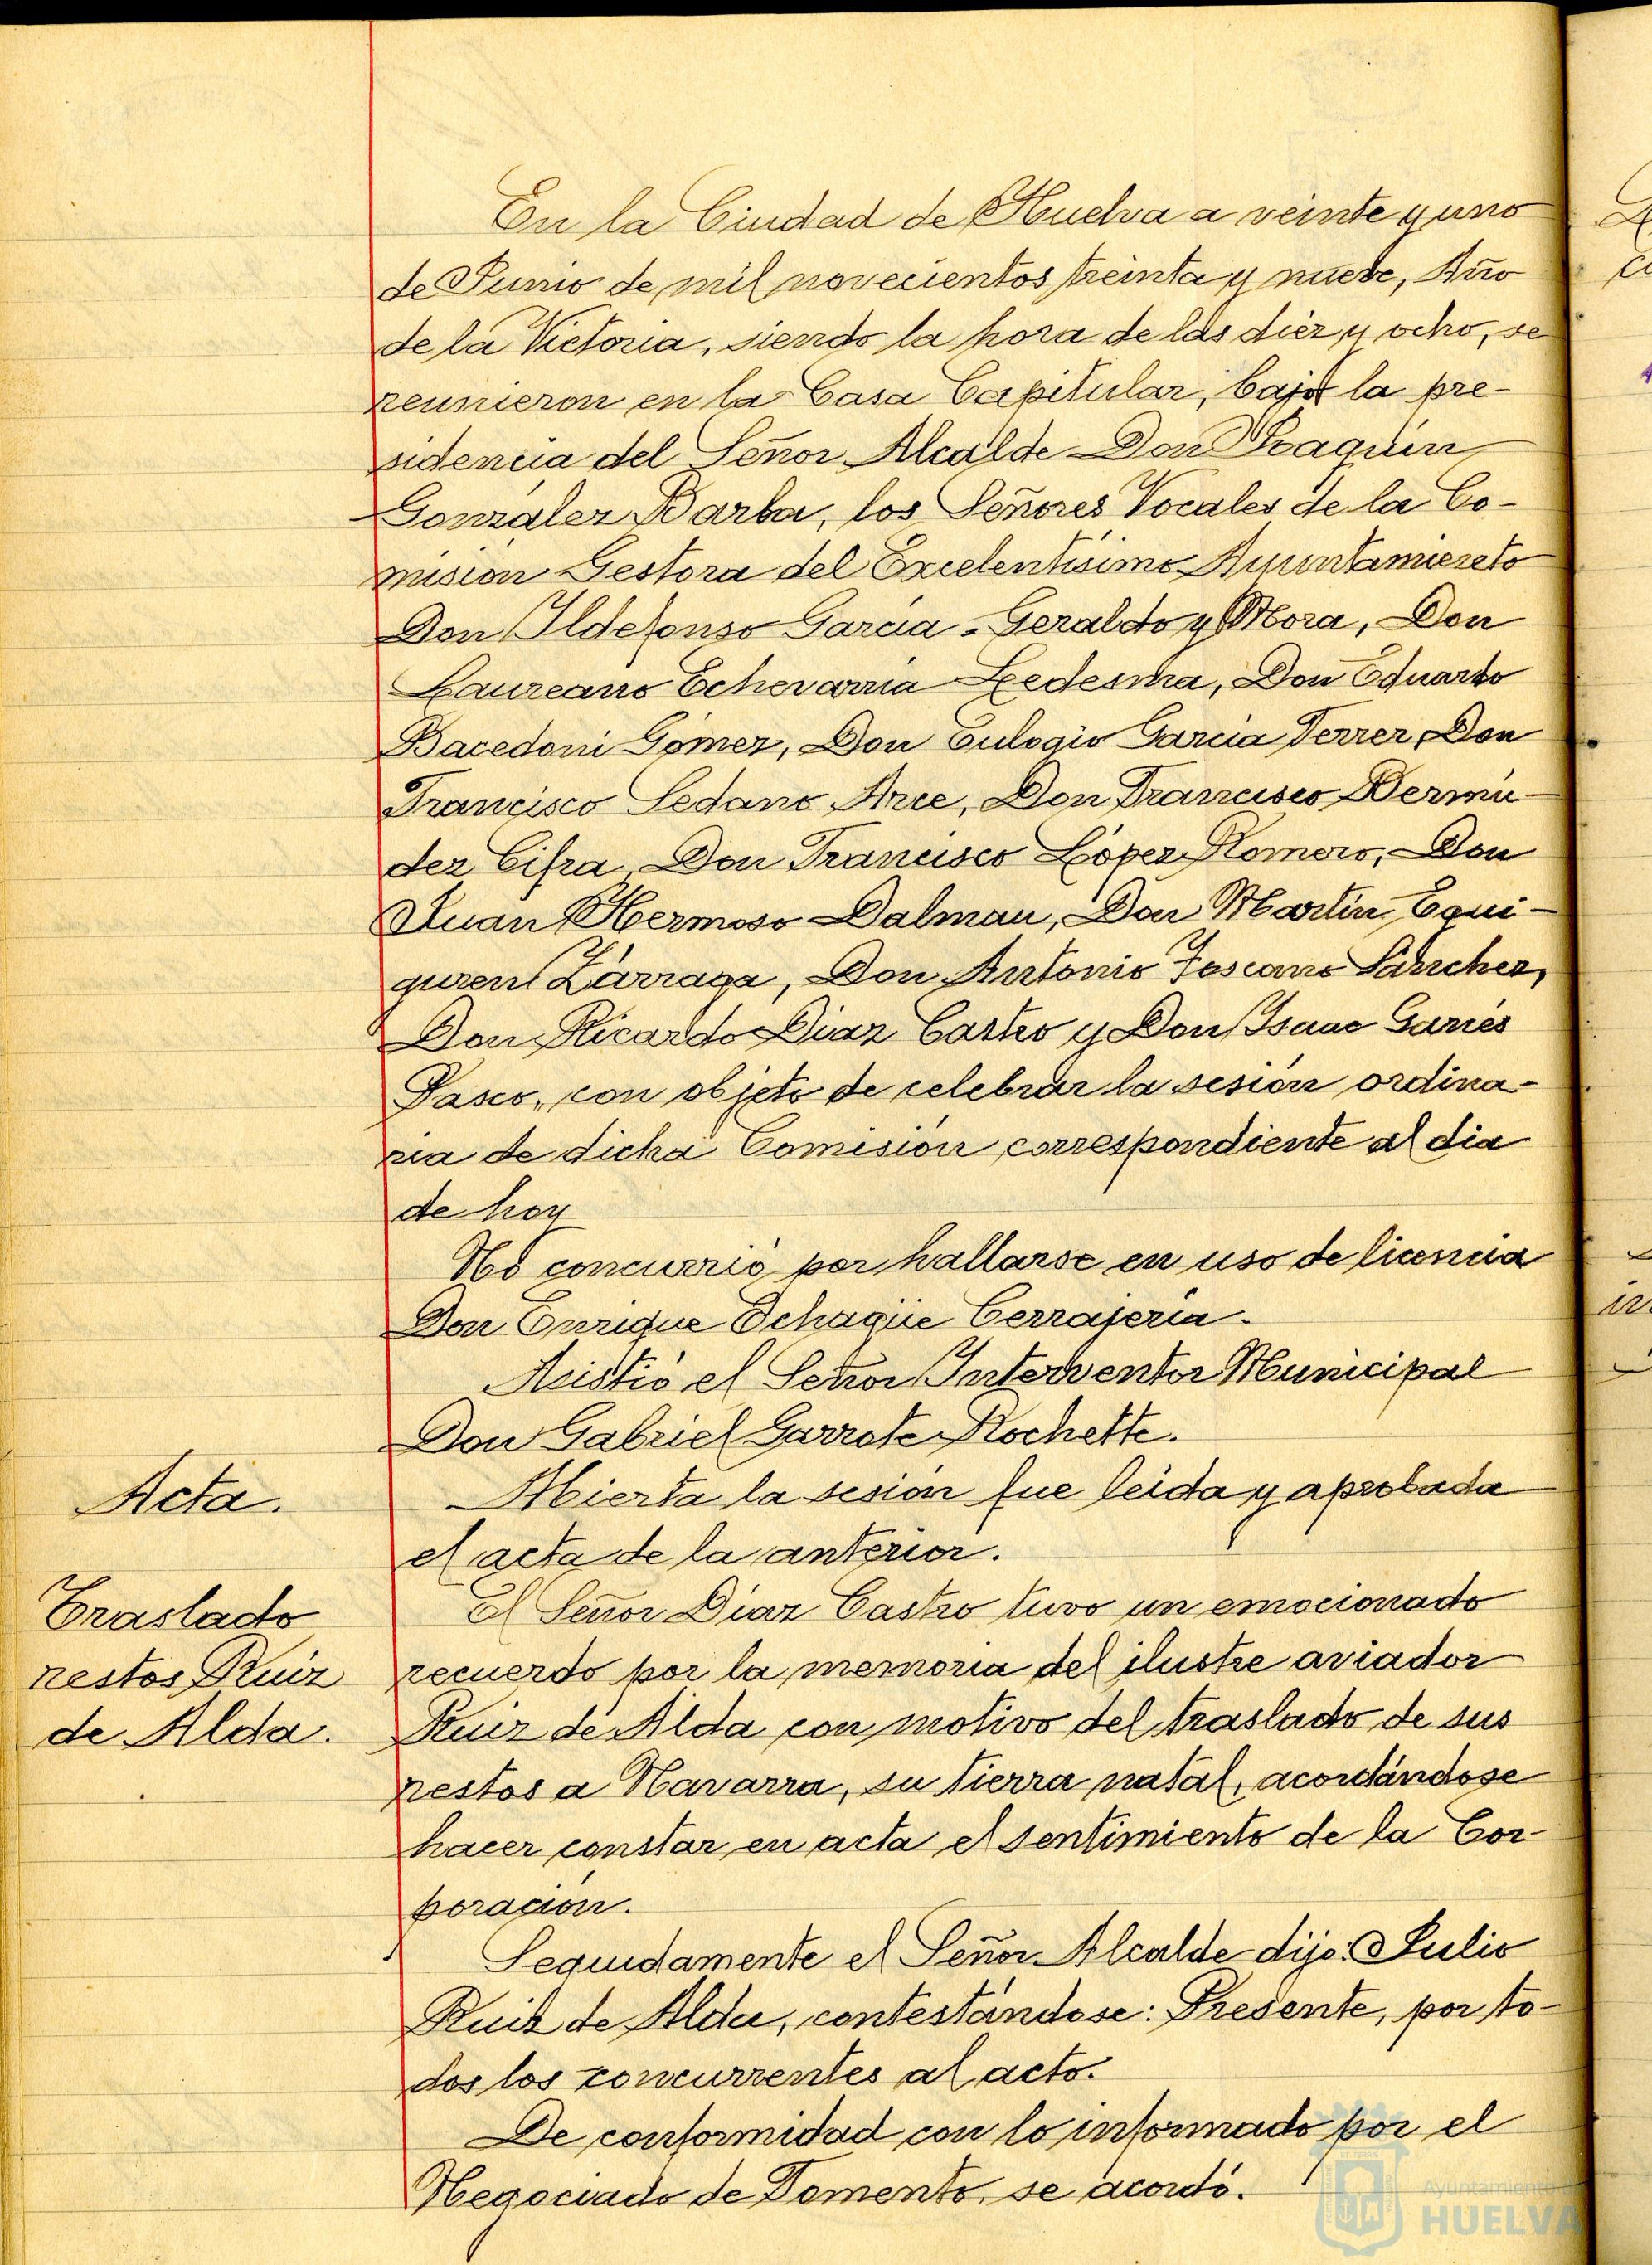 En la Ciudad de Huelva a veinte y uno
de Junio de mil novecientos treinta y nueve, Año
de la Victoria, siendo la hora de las diez y ocho, se
reunieron en la Casa Capitular, bajo la pre-
sidencia del Señor Alcalde Don Joaquin
González Barba, los Señores Vocales de la Co-
misión Gestora del Excelentisimo Ayuntamiento
Don Ildefonso Garcia-Geraldo y Mora, Don
Laureano Echevarria Ledesma, Don Eduardo
Bacedoni Gómez, Don Eulogio Garcia Ferrer, Don
Francisco Sedano Arce, Don Francisco Bermú-
dez Cifra, Don Francisco López Romero, Don
Juan Hermoso Dalmau, Don Martin Egui-
guren Zárraga, Don Antonio Toscano Sánchez,
Don Ricardo Diaz Castro y Don Isaac
Pasco, con objeto de celebrar la sesión ordina-
ria de dicha Comisión correspondiente al dia
de hoy
No concurrió por hallarse en uso de licencia
Don Enrique Echagüe Cerrajeria.
Asistió el Señor Interventor Municipal
Don Gabriel Garrote Rochette.
Acta.
Abierta la sesión fue leida y aprobada
el acta de la anterior.
Traslado
restos Ruiz
de Alda.
El Señor Diaz Castro tuvo un emocionado
recuerdo por la memoria del ilustre aviador
Ruiz de Alda con motivo del traslado de sus
restos a Navarra, su tierra natal, acordándose
hacer constar en acta el sentimiento de la Cor-
poración.
Seguidamente el Señor Alcalde dijo: Julio
Ruiz de Alda, contestándose: Presente, por to-
dos los concurrentes al acto.
De conformidad con lo informado por el
Negociado de Fomento, se acordó.
Ayuntamiento
HUELVA